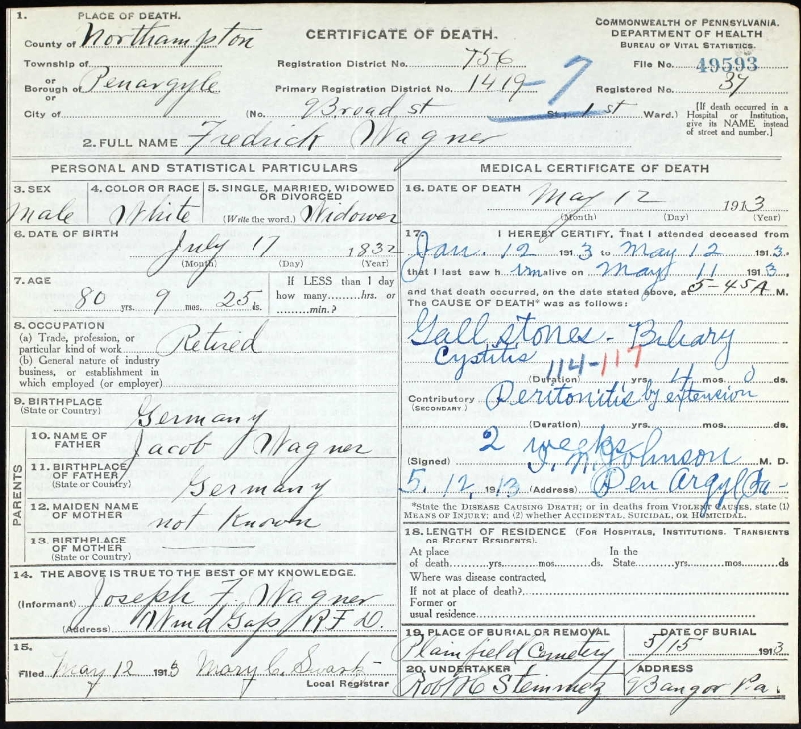 1. PLACE OF DEATH.
County of Northampton
Township of
or
Borough of Penargyle
or
City of
CERTIFICATE OF DEATH.
Registration District No. 756
Primary Registration District No. 1419-7
(No. Broad st St., 1 st Ward.)
COMMONWEALTH OF PENNSYLVANIA.
DEPARTMENT OF HEALTH
BUREAU OF VITAL STATISTICS.
File No. 49593
Registered No. 37
[If death occurred in a Hospital or Institution, give its NAME instead of street and number.]
2. FULL NAME Fredrick Wagner
PERSONAL AND STATISTICAL PARTICULARS
3. SEX Male
4. COLOR OR RACE White
5. SINGLE, MARRIED, WIDOWED OR DIVORCED
(Write the word.) Widower
6. DATE OF BIRTH
July 17 1832
(Month) (Day) (Year)
7. AGE
80 yrs. 9 mes. 25 ds.
If LESS than 1 day
how many hrs. or
min.?
8. OCCUPATION
(a) Trade, profession, or particular kind of work Retired
(b) General nature of industry business, or establishment in which employed (or employer)
9. BIRTHPLACE
(State or Country) Germany
PARENTS
10. NAME OF FATHER Jacob Wagner
11. BIRTHPLACE OF FATHER
(State or Country) Germany
12. MAIDEN NAME OF MOTHER not Known
13. BIRTHPLACE OF MOTHER
(State or Country)
14. THE ABOVE IS TRUE TO THE BEST OF MY KNOWLEDGE.
(Informant) Joseph F. Wagner
(Address) Wind Gap RFD.
15.
Filed May 12 1913 Mary C. Swark
Local Registrar
MEDICAL CERTIFICATE OF DEATH
16. DATE OF DEATH
May 12 1913
(Month) (Day) (Year)
17. I HEREBY CERTIFY, That I attended deceased from
Jan. 12 1913 to May 12 1913.
that I last saw h im alive on May 11 1913,
and that death occurred, on the date stated above, at 5-45 A M.
The CAUSE OF DEATH* was as follows:
Gall stones - Biliary
Cystitis
114-117
(Duration) yrs. 4 mos. 0 ds.
Contributory Peritonitis by extension
(SECONDARY)
(Duration) yrs. mos. ds.
2 weeks
(Signed) I. N. Johnson M. D.
5. 12, 1913 (Address) Pen Argyl Pa-
*State the DISEASE CAUSING DEATH; or in deaths from VIOLENT CAUSES, state (1)
MEANS OF INJURY; and (2) whether ACCIDENTAL, SUICIDAL, OR HOMICIDAL.
18. LENGTH OF RESIDENCE (FOR HOSPITALS, INSTITUTIONS, TRANSIENTS OR RECENT RESIDENTS).
At place of death yrs. mos. ds
In the State yrs. mos. ds
Where was disease contracted,
If not at place of death?
Former or
usual residence
19. PLACE OF BURIAL OR REMOVAL
Plainfield Cemetery
DATE OF BURIAL
5/15 1913
20. UNDERTAKER
Robt H Steinmetz
ADDRESS
Bangor Pa.